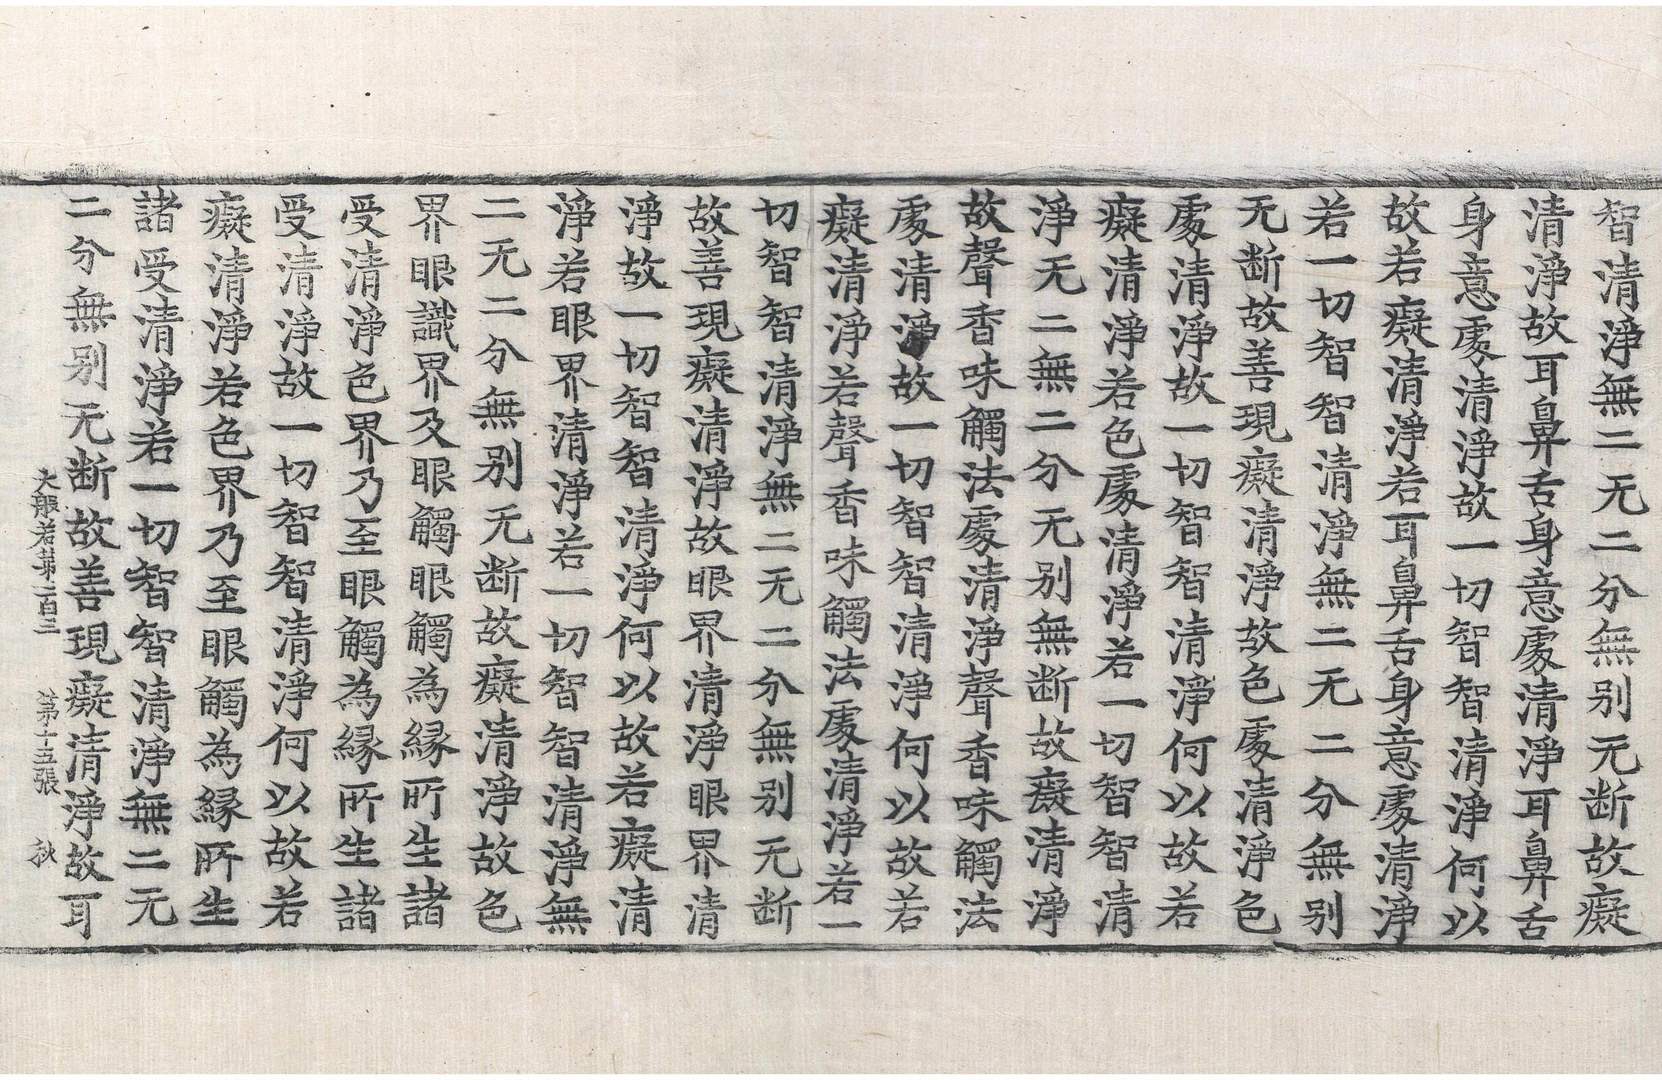 智清淨無二无二分無别无断故癡
清淨故耳鼻舌身意處清淨耳鼻舌
身意處清淨故一切智智清淨何以
故若癡清淨若耳鼻舌身意處清淨
若一切智智清淨無二无二分無别
无断故善現癡清淨故色處清淨色
處清淨故一切智智清淨何以故若
癡清淨若色處清淨若一切智智清
淨无二無二分无别無断故癡清淨
故聲香味觸法處清淨聲香味觸法
處清淨故一切智智清淨何以故若
癡清淨若聲香味觸法處清淨若一
切智智清淨無二无二分無别无断
故善現癡清淨故眼界清淨眼界清
淨故一切智智清淨何以故若癡清
淨若眼界清淨若一切智智清淨無
二无二分無别无断故癡清淨故色
界眼識界及眼觸眼觸為緣所生諸
受清淨色界乃至眼觸為緣所生諸
受清淨故一切智智清淨何以故若
癡清淨若色界乃至眼觸為緣所生
諸受清淨若一切智智清淨無二无
二分無别无断故善現癡清淨故耳
大般若第二百三 第十五張 秋